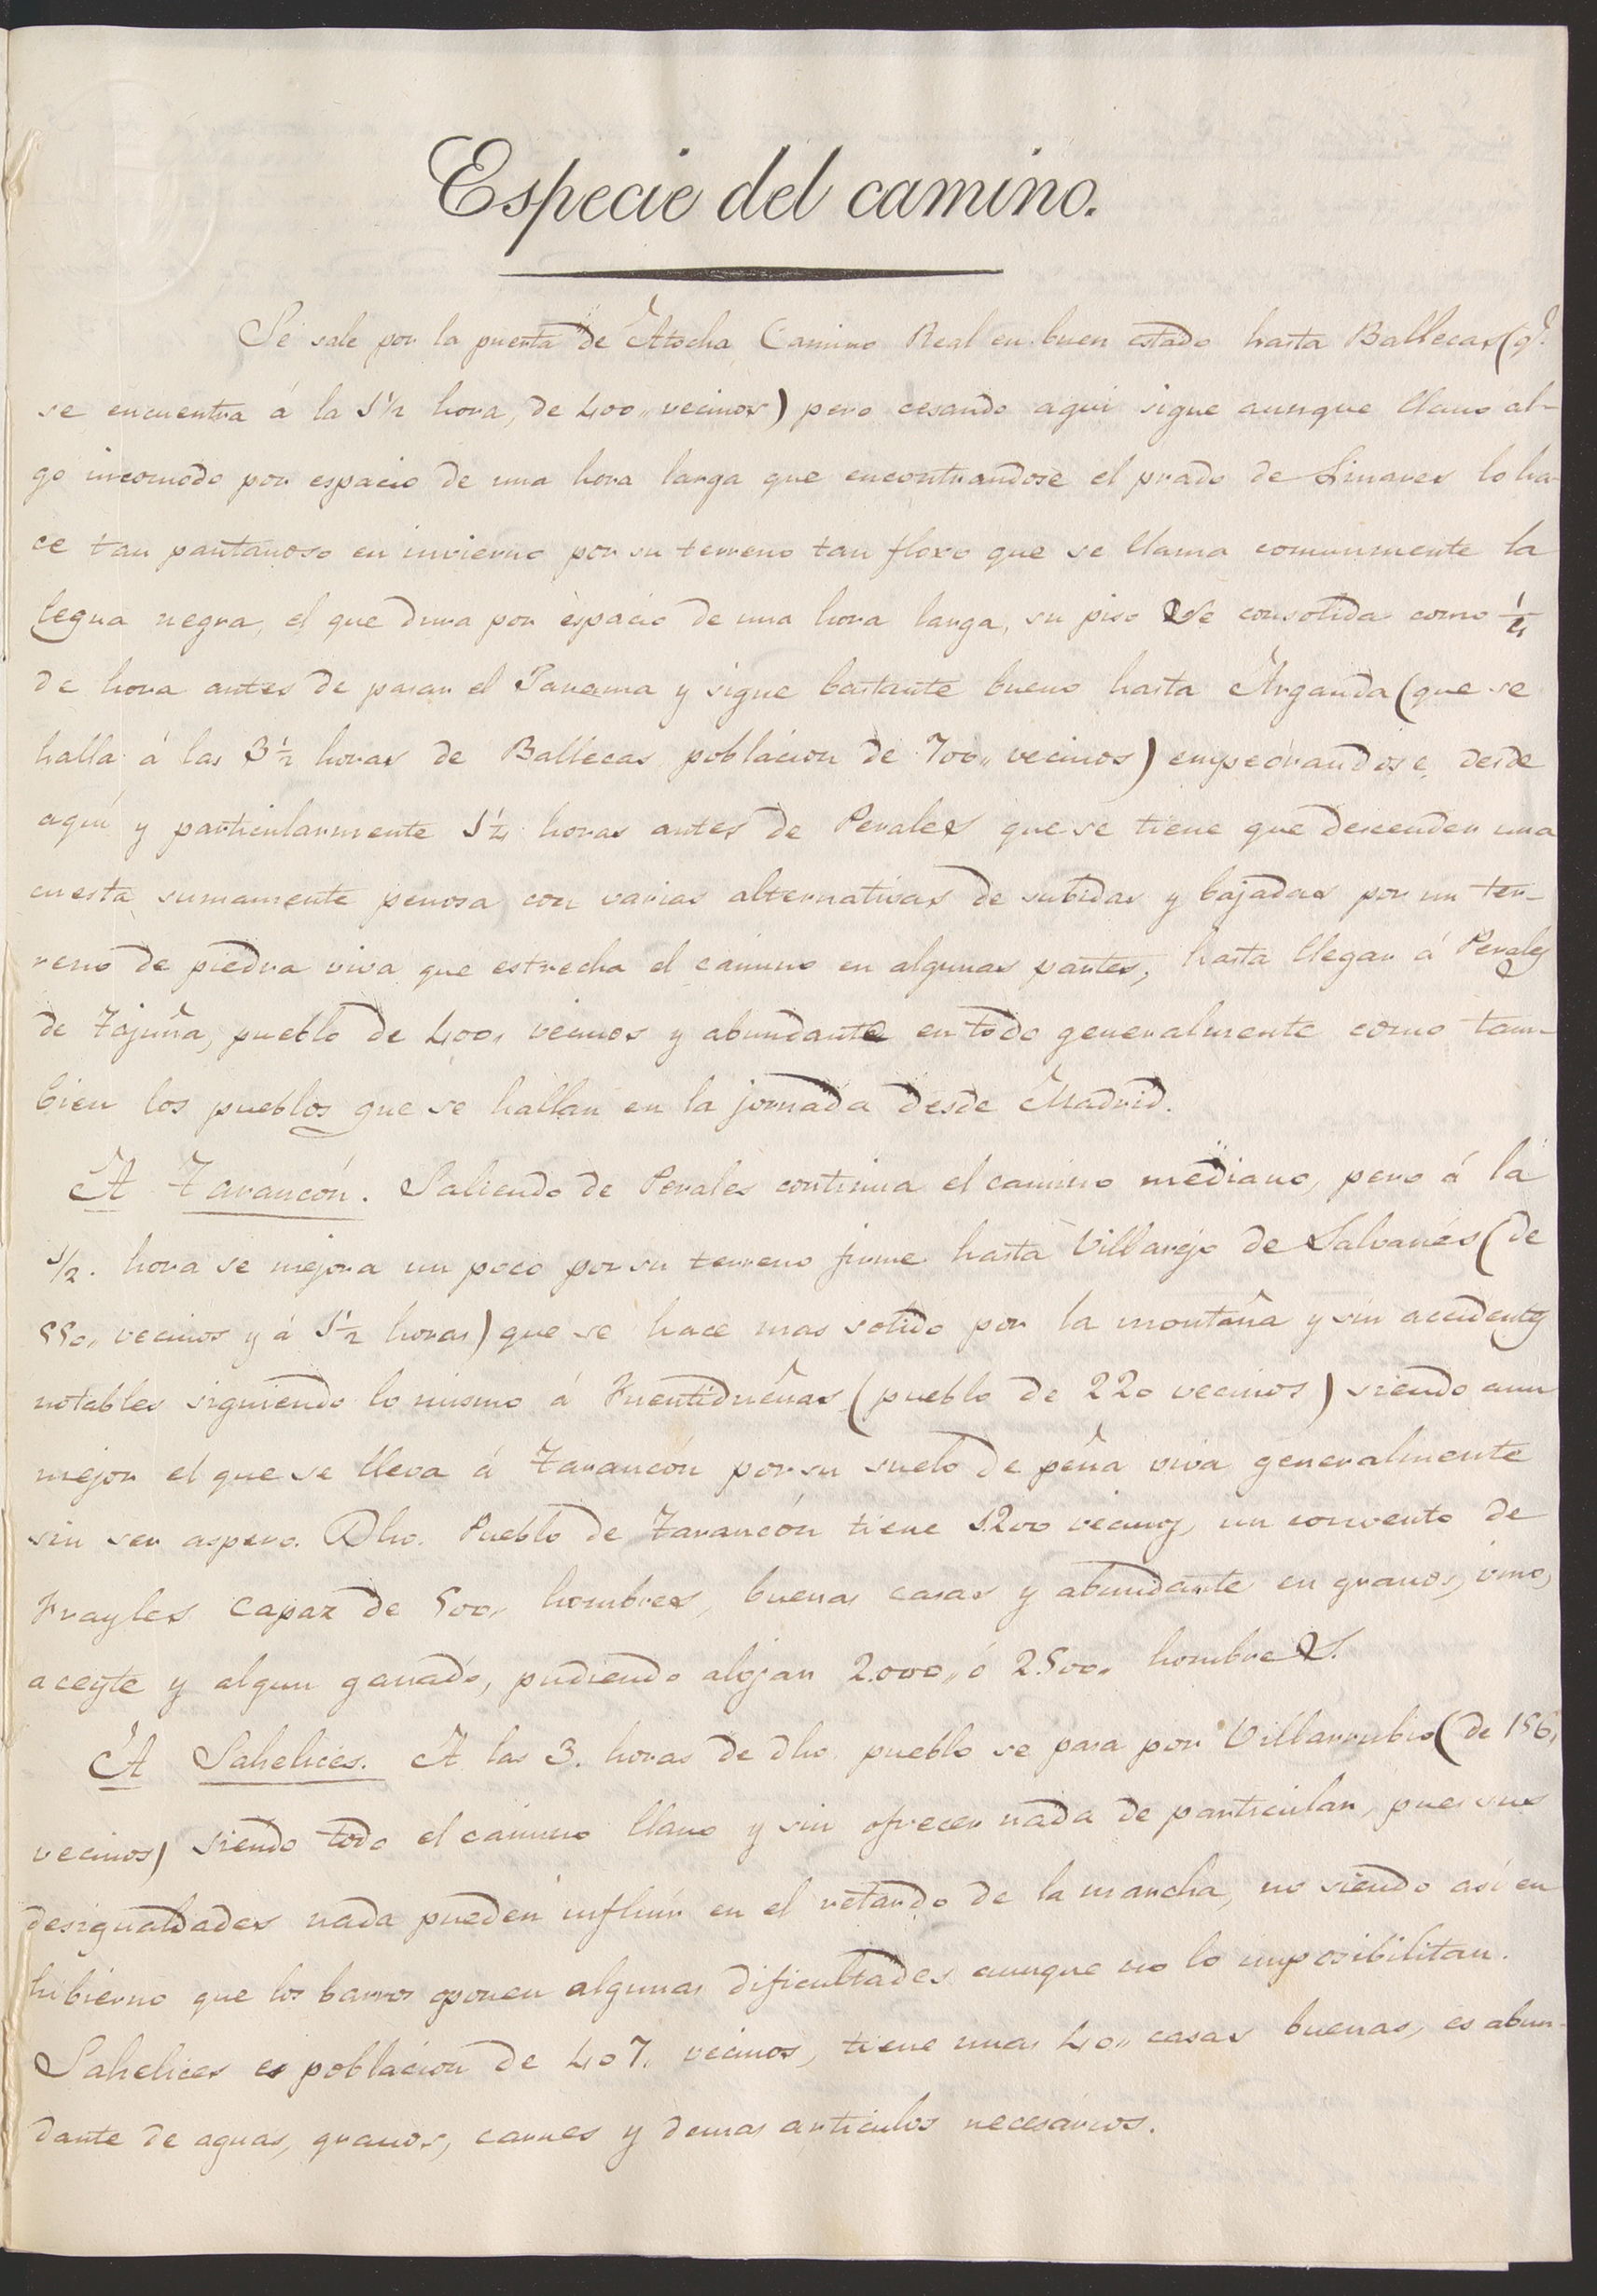 Especie del camino.
Se sale por la puerta de Atocha Camino Real en buen estado hasta Ballecas (q.e
se encuentra á la 1 1/2 hora, de 400,, vecinos) pero cesando aqui sigue aunque llano al-
go incomodo por espacio de una hora larga que encontrandose el prado de Linares lo ha-
ce tan pantanoso en invierno por su terreno tan floxo que se llama comunmente la
legua negra, el que dura por espacio de una hora larga, su piso se consolida como 1/4
de hora antes de pasar el Jarama y sigue bastante bueno hasta Arganda (que se
halla á las 3 1/2 horas de Ballecas poblacion de 700,, vecinos) empeorandose desde
aqui y particularmente 1 1/4 horas antes de Perales que se tiene que descender una
cuesta sumamente penosa con varias alternativas de subidas y bajadas por un ter-
reno de piedra viva que estrecha el camino en algunas partes, hasta llegar á Perales
de Tajuña, pueblo de 400,, vecinos y abundante en todo generalmente como tam-
bien los pueblos que se hallan en la jornada desde Madrid.
A Tarancón. Saliendo de Perales continua el camino mediano, pero á la
1/2. hora se mejora un poco por su terreno firme hasta Villarejo de Salvanés (de
550,, vecinos y á 1 1/2 horas) que se hace mas solido por la montaña y sin accidentes
notables siguiendo lo mismo á Fuentidueñas (pueblo de 220 vecinos) siendo aun
mejor el que se lleva á Tarancón por su suelo de peña viva generalmente
sin ser aspero. Dho. Pueblo de Tarancón tiene 1200 vecinos, un convento de
Frayles capaz de 500,, hombres, buenas casas y abundante en granos, vino,
aceyte y algun ganado, pudiendo alojar 2.000,, ó 2.500,, hombres.
A Sahelices. A las 3. horas de dho. pueblo se pasa por Villarrubio (de 156,,
vecinos) siendo todo el camino llano y sin ofrecer nada de particular, pues sus
desigualdades nada pueden influir en el retardo de la marcha, no siendo así en
hibierno que los barros oponen algunas dificultades aunque no lo imposibilitan.
Sahelices es poblacion de 407,, vecinos, tiene unas 40,, casas buenas, es abun-
dante de aguas, granos, carnes y demas articulos necesarios.